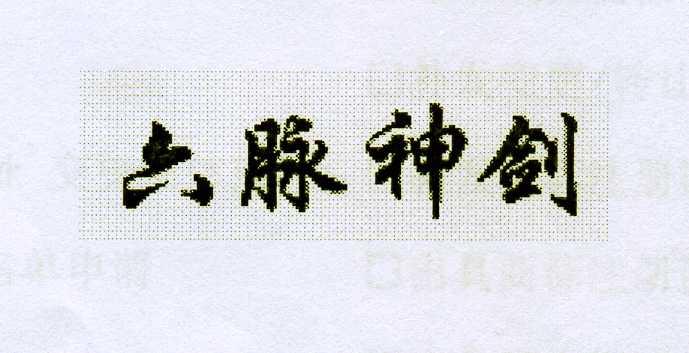 六脉神剑